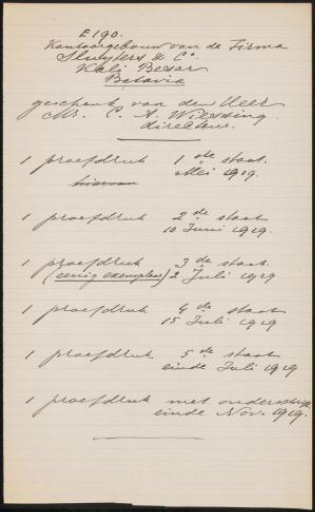 E 190.
Kantoorgebouw van de Firma
Sluyters & Co.
Kali Besar
Batavia
geschenk van den Heer
Mr. C. A. Wiessing.
directeur.
1 proefdruk 1 ste staat.
Mei 1919.
hiervan
1 proefdruk 2 de staat
10 Juni 1919.
1 proefdruk 3 de staat
(eenig exemplaar) 2 Juli 1919
1 proefdruk 4 de staat
15 Juli 1919
1 proefdruk 5 de staat
einde Juli 1919
1 proefdruk met onderschrift
einde Nov. 1919.